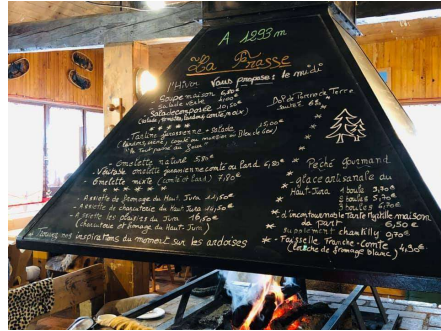 A 1293 m
La Frasse
l'Hiver vous propose : le midi
- Soupe maison 6,50€
- Salade verte 4,00€
- Salade composée 10,50€
(salade, tomates, lardons, comté, noix)
- Tartine jurassienne + salade 15,00€
"Le Tout parme du Jura"
- Omelette nature 5,80€
- Véritable omelette jurassienne comté ou lard 6,50€
- Omelette mixte (comté et lard) 7,80€
- Assiette de fromage du Haut-Jura 11,50€
- Assiette de charcuterie du Haut-Jura
- Assiette les plaisirs du Jura 16,50€
(charcuterie et fromage du Haut-Jura)
Trouvez nos inspirations du moment sur les ardoises
Pomme de Terre
Péché gourmand
* glace artisanale du
Haut-Jura 1 boule
2 boules
3 boules
* d'incontournable Tarte Myrtille maison
la part 6,50€
supplément chantilly 0,70€
* - Faisselle Franche-Comté
(Cloche de fromage blanc) 4,30€